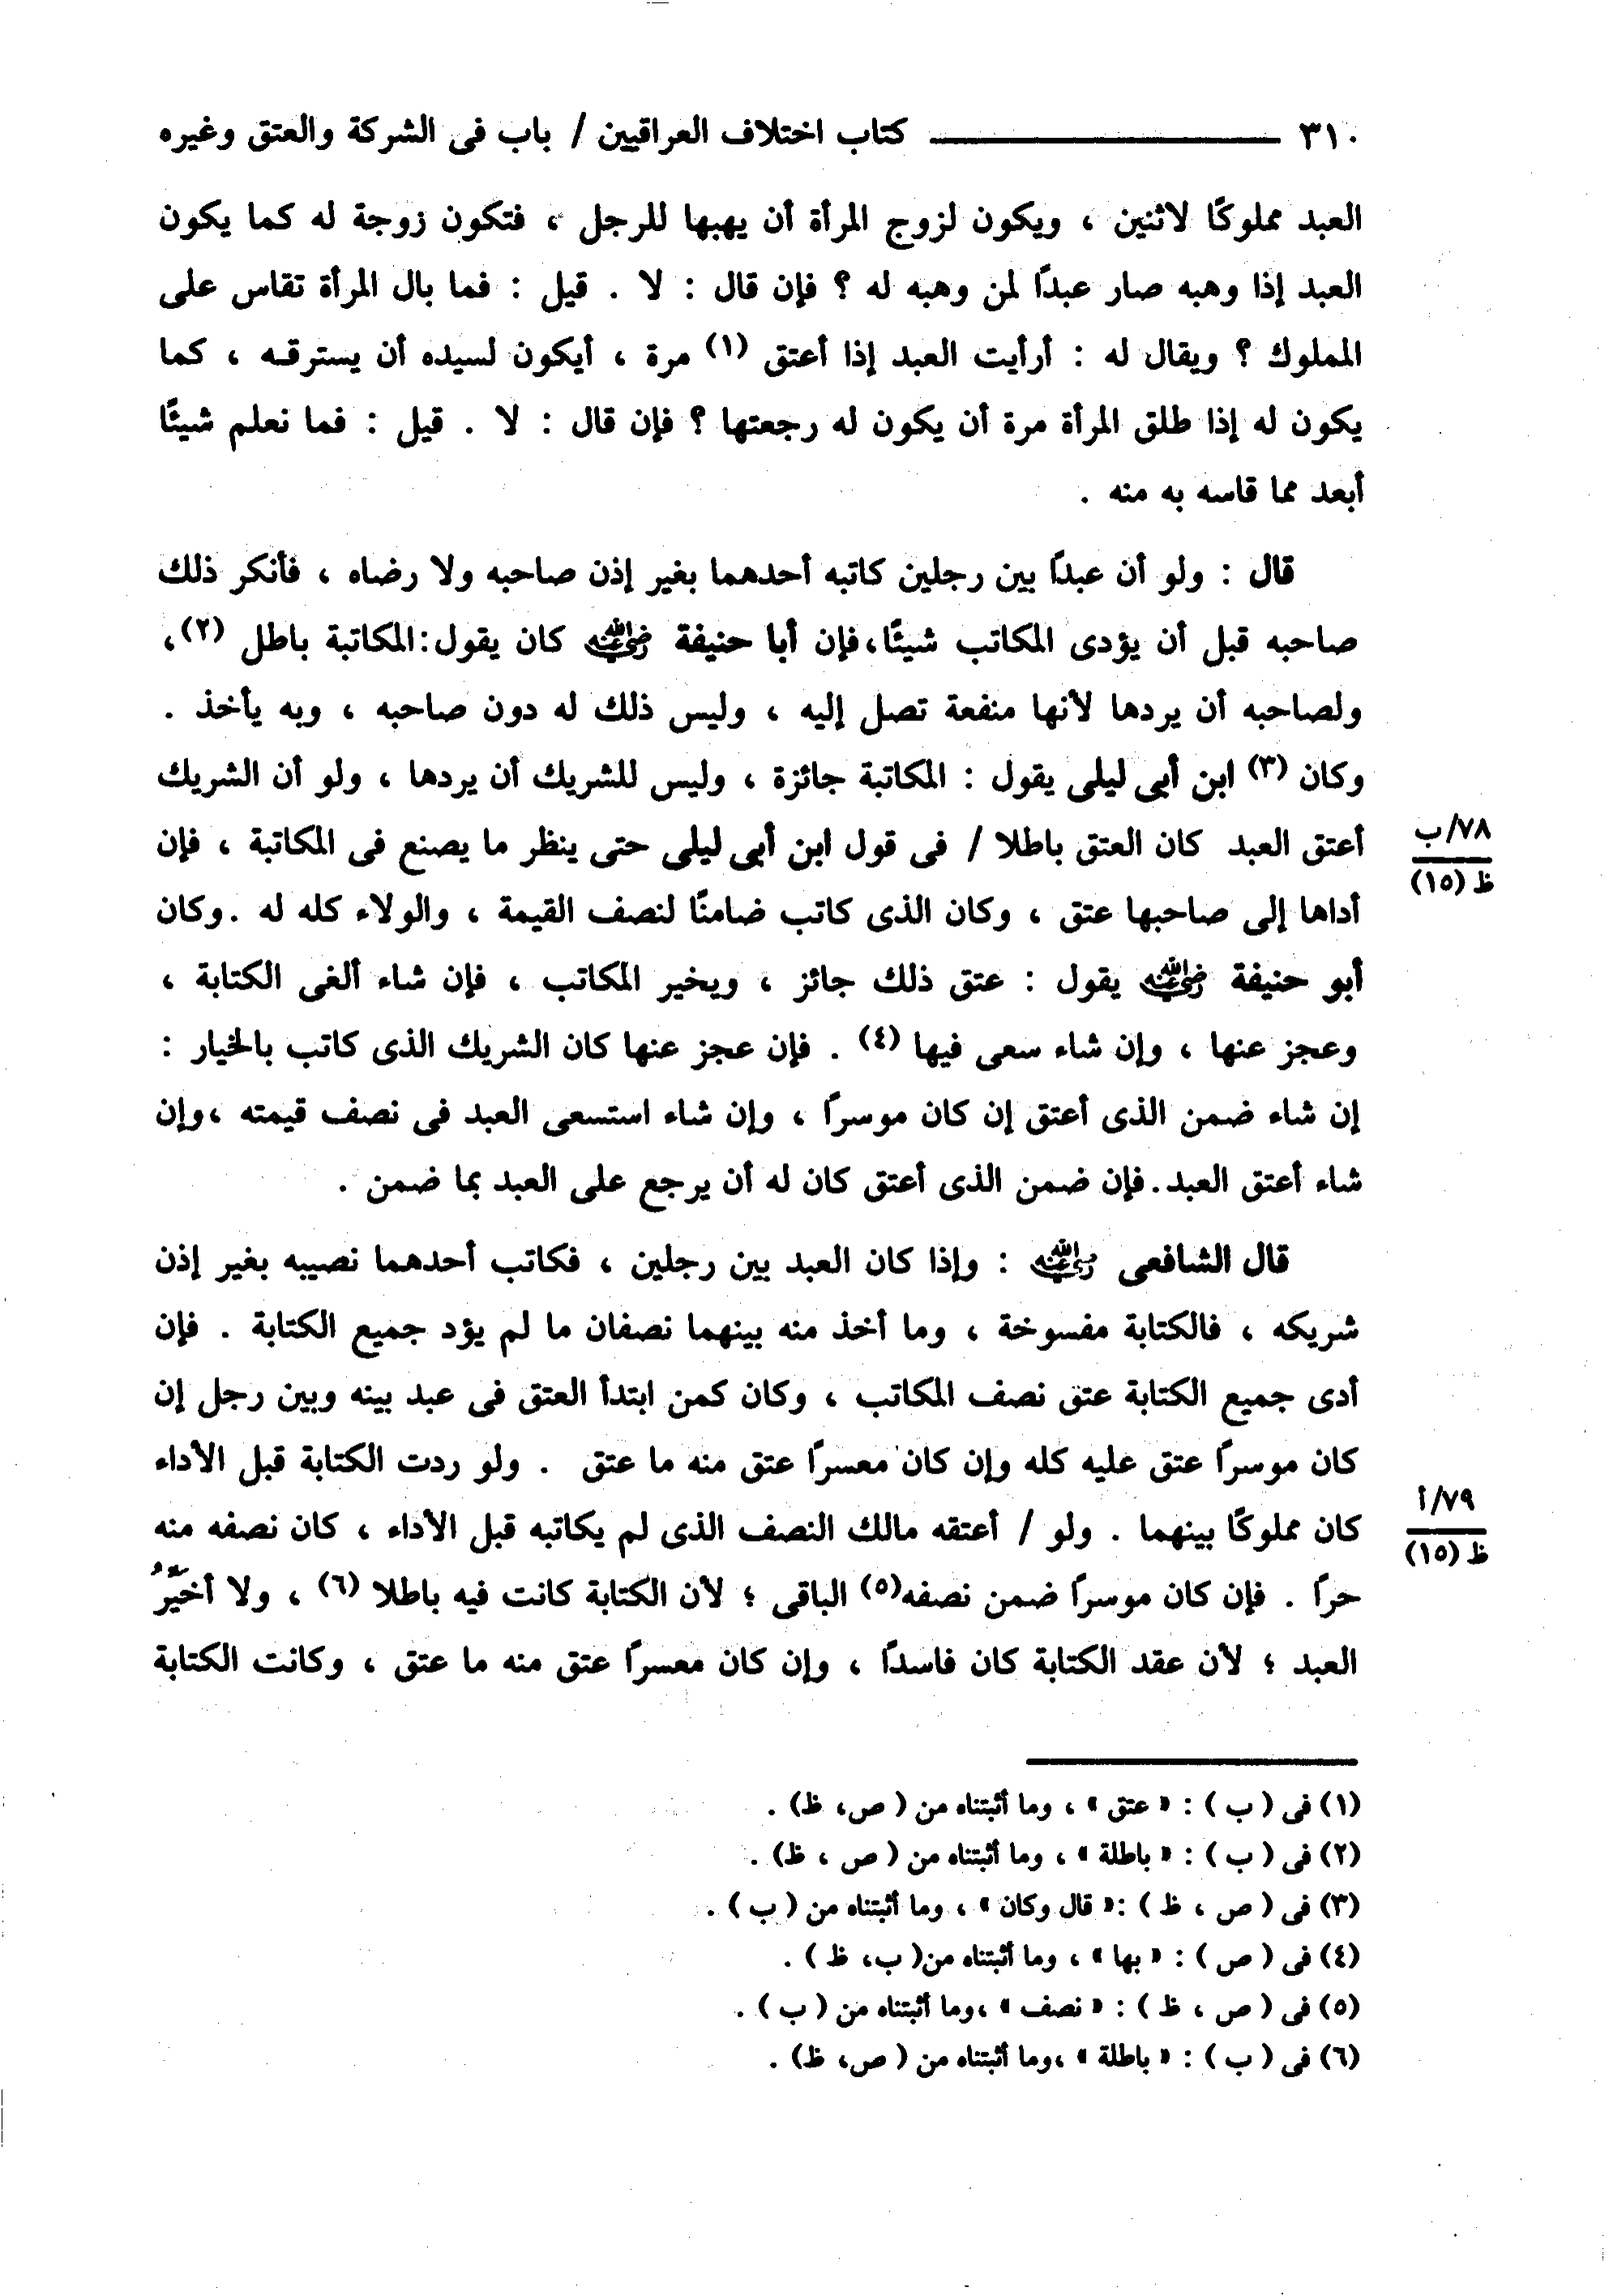 ٣١٠ كتاب اختلاف العراقيين / باب فى الشركة والعتق وغيره
العبد مملوكًا لاثنين ، ويكون لزوج المرأة أن يهبها للرجل ، فتكون زوجة له كما يكون
العبد إذا وهبه صار عبدًا لمن وهبه له ؟ فإن قال : لا . قيل : فما بال المرأة تقاس على
المملوك ؟ ويقال له : أرأيت العبد إذا أعتق (١) مرة ، أيكون لسيده أن يسترقه ، كما
يكون له إذا طلق المرأة مرة أن يكون له رجعتها ؟ فإن قال : لا . قيل : فما نعلم شيئًا
أبعد مما قاسه به منه .
قال : ولو أن عبدًا بين رجلين كاتبه أحدهما بغير إذن صاحبه ولا رضاه ، فأنكر ذلك
صاحبه قبل أن يؤدى المكاتب شيئًا، فإن أبا حنيفة رضي الله عنه كان يقول: المكاتبة باطل (٢)،
ولصاحبه أن يردها لأنها منفعة تصل إليه ، وليس ذلك له دون صاحبه ، وبه يأخذ .
وكان (٣) ابن أبى ليلى يقول : المكاتبة جائزة ، وليس للشريك أن يردها ، ولو أن الشريك
أعتق العبد كان العتق باطلا / فى قول ابن أبى ليلى حتى ينظر ما يصنع فى المكاتبة ، فإن
٧٨/ب
ظ (١٥)
أداها إلى صاحبها عتق ، وكان الذى كاتب ضامنًا لنصف القيمة ، والولاء كله له .وكان
أبو حنيفة رضي الله عنه يقول : عتق ذلك جائز ، ويخير المكاتب ، فإن شاء ألغى الكتابة ،
وعجز عنها ، وإن شاء سعى فيها (٤) . فإن عجز عنها كان الشريك الذى كاتب بالخيار :
إن شاء ضمن الذى أعتق إن كان موسرًا ، وإن شاء استسعى العبد فى نصف قيمته ،وإن
شاء أعتق العبد. فإن ضمن الذى أعتق كان له أن يرجع على العبد بما ضمن .
قال الشافعى رضي الله عنه : وإذا كان العبد بين رجلين ، فكاتب أحدهما نصيبه بغير إذن
شريكه ، فالكتابة مفسوخة ، وما أخذ منه بينهما نصفان ما لم يؤد جميع الكتابة . فإن
أدى جميع الكتابة عتق نصف المكاتب ، وكان كمن ابتدأ العتق فى عبد بينه وبين رجل إن
كان موسرًا عتق عليه كله وإن كان معسرًا عتق منه ما عتق . ولو ردت الكتابة قبل الأداء
كان مملوكًا بينهما . ولو / أعتقه مالك النصف الذى لم يكاتبه قبل الأداء ، كان نصفه منه
٧٩/أ
ظ (١٥)
حرًا . فإن كان موسرًا ضمن نصفه(٥) الباقى ؛ لأن الكتابة كانت فيه باطلا (٦) ، ولا أخَيِّرُ
العبد ؛ لأن عقد الكتابة كان فاسدًا ، وإن كان معسرًا عتق منه ما عتق ، وكانت الكتابة
(١) فى ( ب ) : « عتق » ، وما أثبتناه من ( ص، ظ) .
(٢) فى ( ب ) : « باطلة » ، وما أثبتناه من ( ص ، ظ) .
(٣) فى ( ص ، ظ ) :« قال وكان » ، وما أثبتناه من ( ب ) .
(٤) فى ( ص ) : « بها » ، وما أثبتناه من( ب، ظ ) .
(٥) فى ( ص ، ظ ) : « نصف » ،وما أثبتناه من ( ب ) .
(٦) فى ( ب ) : « باطلة » ،وما أثبتناه من ( ص، ظ) .